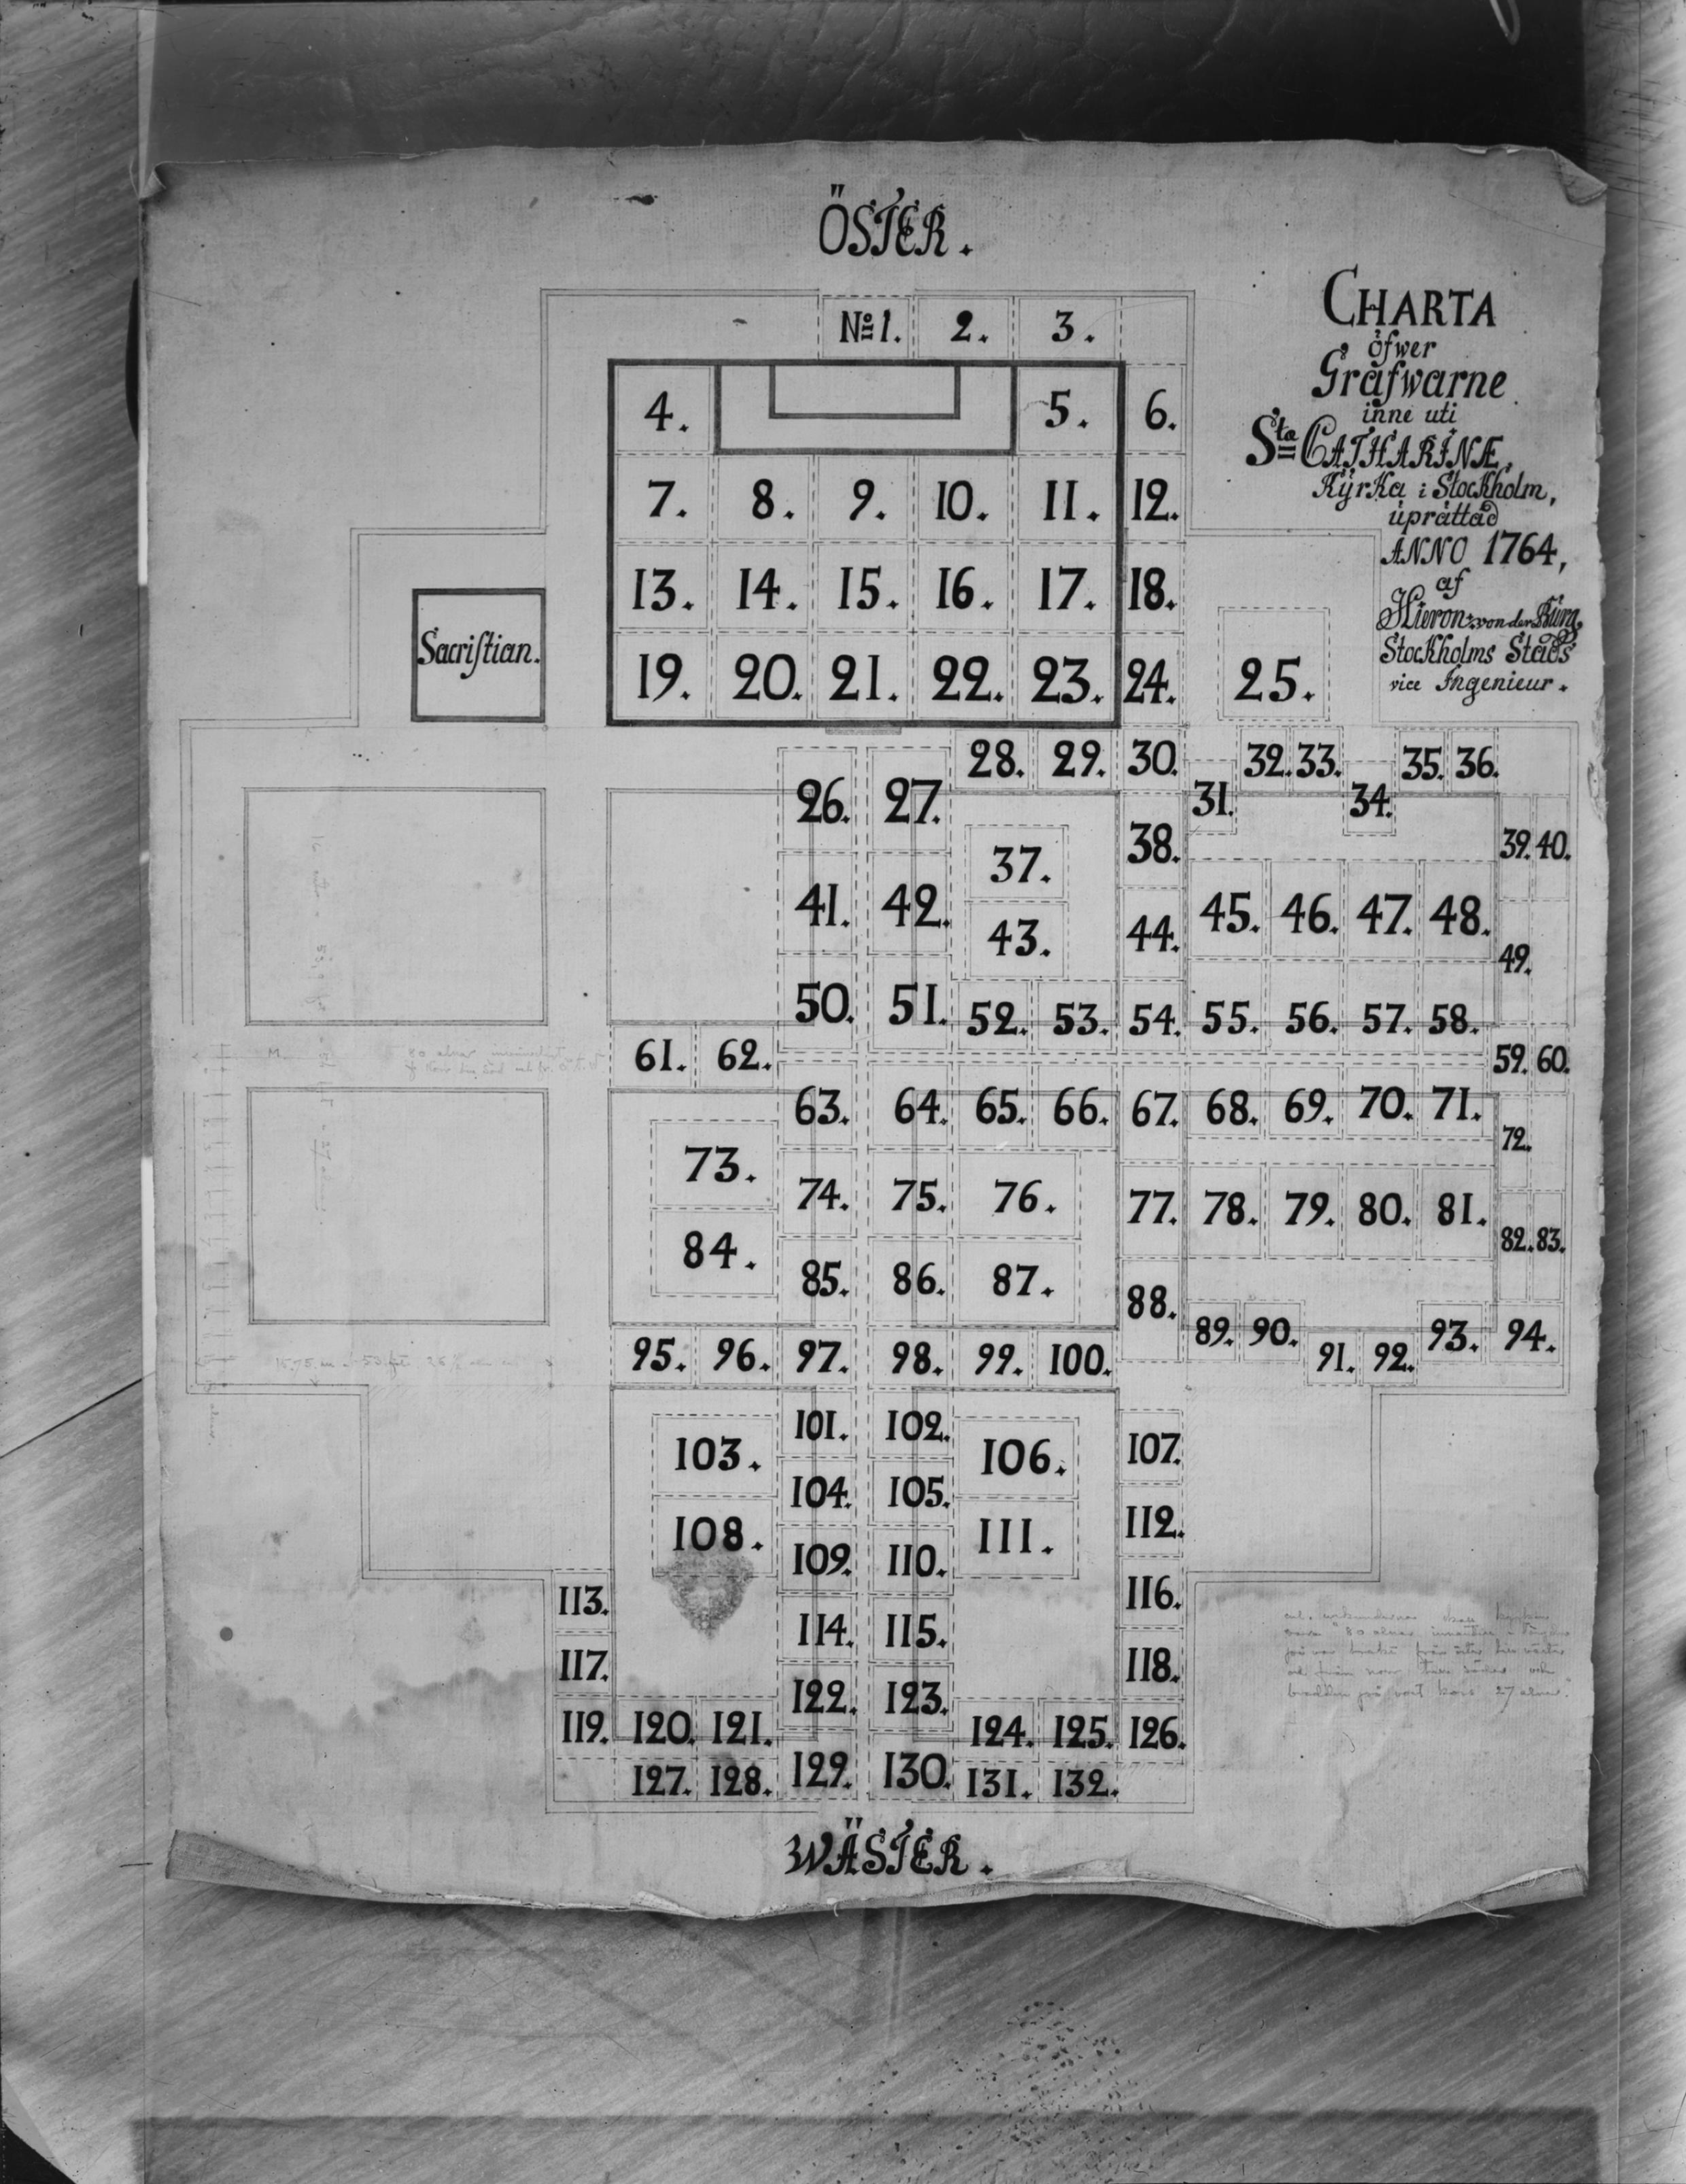 ÖSTER.
CHARTA
öfwer
Grafwarne
inne uti
Sta CATHARINÆ,
Kyrka i Stockholm,
uprättad
ANNO 1764,
af
Hieron: von der Burg,
Stockholms Stads
vice Ingenieur.
No 1. 2. 3.
4. 5. 6.
7. 8. 9. 10. 11. 12.
13. 14. 15. 16. 17. 18.
Sacristian.
19. 20. 21. 22. 23. 24. 25.
28. 29. 30. 32. 33. 35. 36.
26. 27. 31. 34.
37. 38. 39. 40.
41. 42. 43. 44. 45. 46. 47. 48.
49.
50. 51. 52. 53. 54. 55. 56. 57. 58.
61. 62. 59. 60.
63. 64. 65. 66. 67. 68. 69. 70. 71.
72.
73. 74. 75. 76. 77. 78. 79. 80. 81.
82. 83.
84. 85. 86. 87. 88.
89. 90. 91. 92. 93. 94.
95. 96. 97. 98. 99. 100.
101. 102.
103. 106. 107.
104. 105.
108. 111. 112.
109. 110.
113. 116.
114. 115.
117. 118.
122. 123.
119. 120. 121. 124. 125. 126.
127. 128. 129. 130. 131. 132.
WÄSTER.